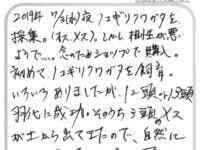 2019年 7/3(水)夜 ノコギリクワガタを
採集。(オス、メス)。しかし相性が悪い
ようで…。念のためショップで購入。
初めて、ノコギリクワガタを飼育。
いろいろありましたが、12頭の1/3頭
羽化に成功。そのうち3頭のメス
が土から出てきたので、自然に